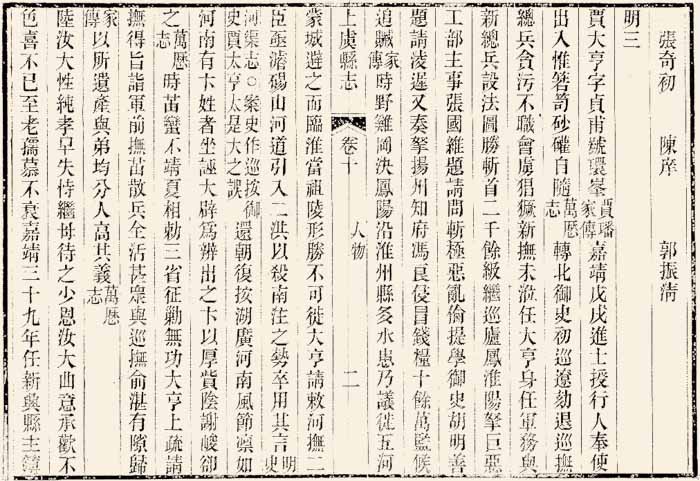 張奇初　陳庠　郭振清
明三
賈大亨字貞甫號環峯賈璠家傳嘉靖戊戌進士授行人奉使
出入惟箬笥砂礶自隨萬歷志轉北御史初巡遼劾退巡撫
總兵貪污不職會虜猖獗新撫未涖任大亨身任軍務與
新總兵設法圖勝斬首二千餘級繼巡廬鳳淮陽拏巨惡
工部主事張國維題請問斬極惡亂倫提學御史胡明善
題請淩遲又奏拏揚州知府馮良侵冒錢糧十餘萬監候
追贓家傳時野雞岡決鳳陽沿淮州縣多水患乃議徙五河
上虞縣志　卷十　人物　二
蒙城避之而臨淮當祖陵形勝不可徙大亨請敕河撫二
臣亟濬碭山河道引入二洪以殺南注之勢卒用其言明史
河渠志○案史作巡按御史賈太亨太是大之誤還朝復按湖廣河南風節凛如
河南有卞姓者坐誣大辟爲辨出之卞以厚貲陰謝峻卻
之萬歷志時苗蠻不靖夏相勅三省征勦無功大亨上疏請
撫得旨詣軍前撫苗散兵全活甚衆與巡撫俞湛有隙歸
家傳以所遺產與弟均分人高其義萬歷志
陸汝大性純孝早失恃繼母待之少恩汝大曲意承歡不
色喜不已至老孺慕不衰嘉靖三十九年任新興縣主簿